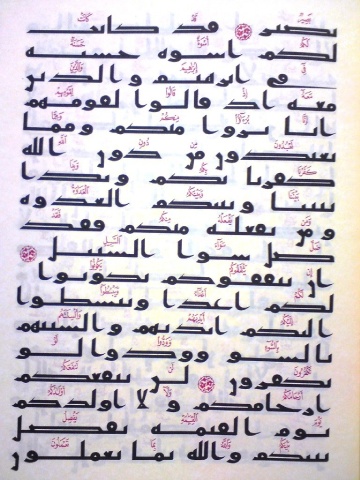 بصير قد كانت
لكم اسوة حسنة
في ابرهيم والذين
معه اذ قالوا لقومهم
انا برءوا منكم ومما
تعبدون من دون الله
كفرنا بكم وبدا
بيننا وبينكم العدوة
ومن يفعله منكم فقد
ضل سوا السبيل
ان يثقفوكم يكونوا
لكم اعدا ويبسطوا
اليكم ايديهم والسنتهم
بالسو وودوا لو
تكفرون لن تنفعكم
ارحامكم ولا اولدكم
يوم القيمة يفصل
بينكم والله بما تعملون